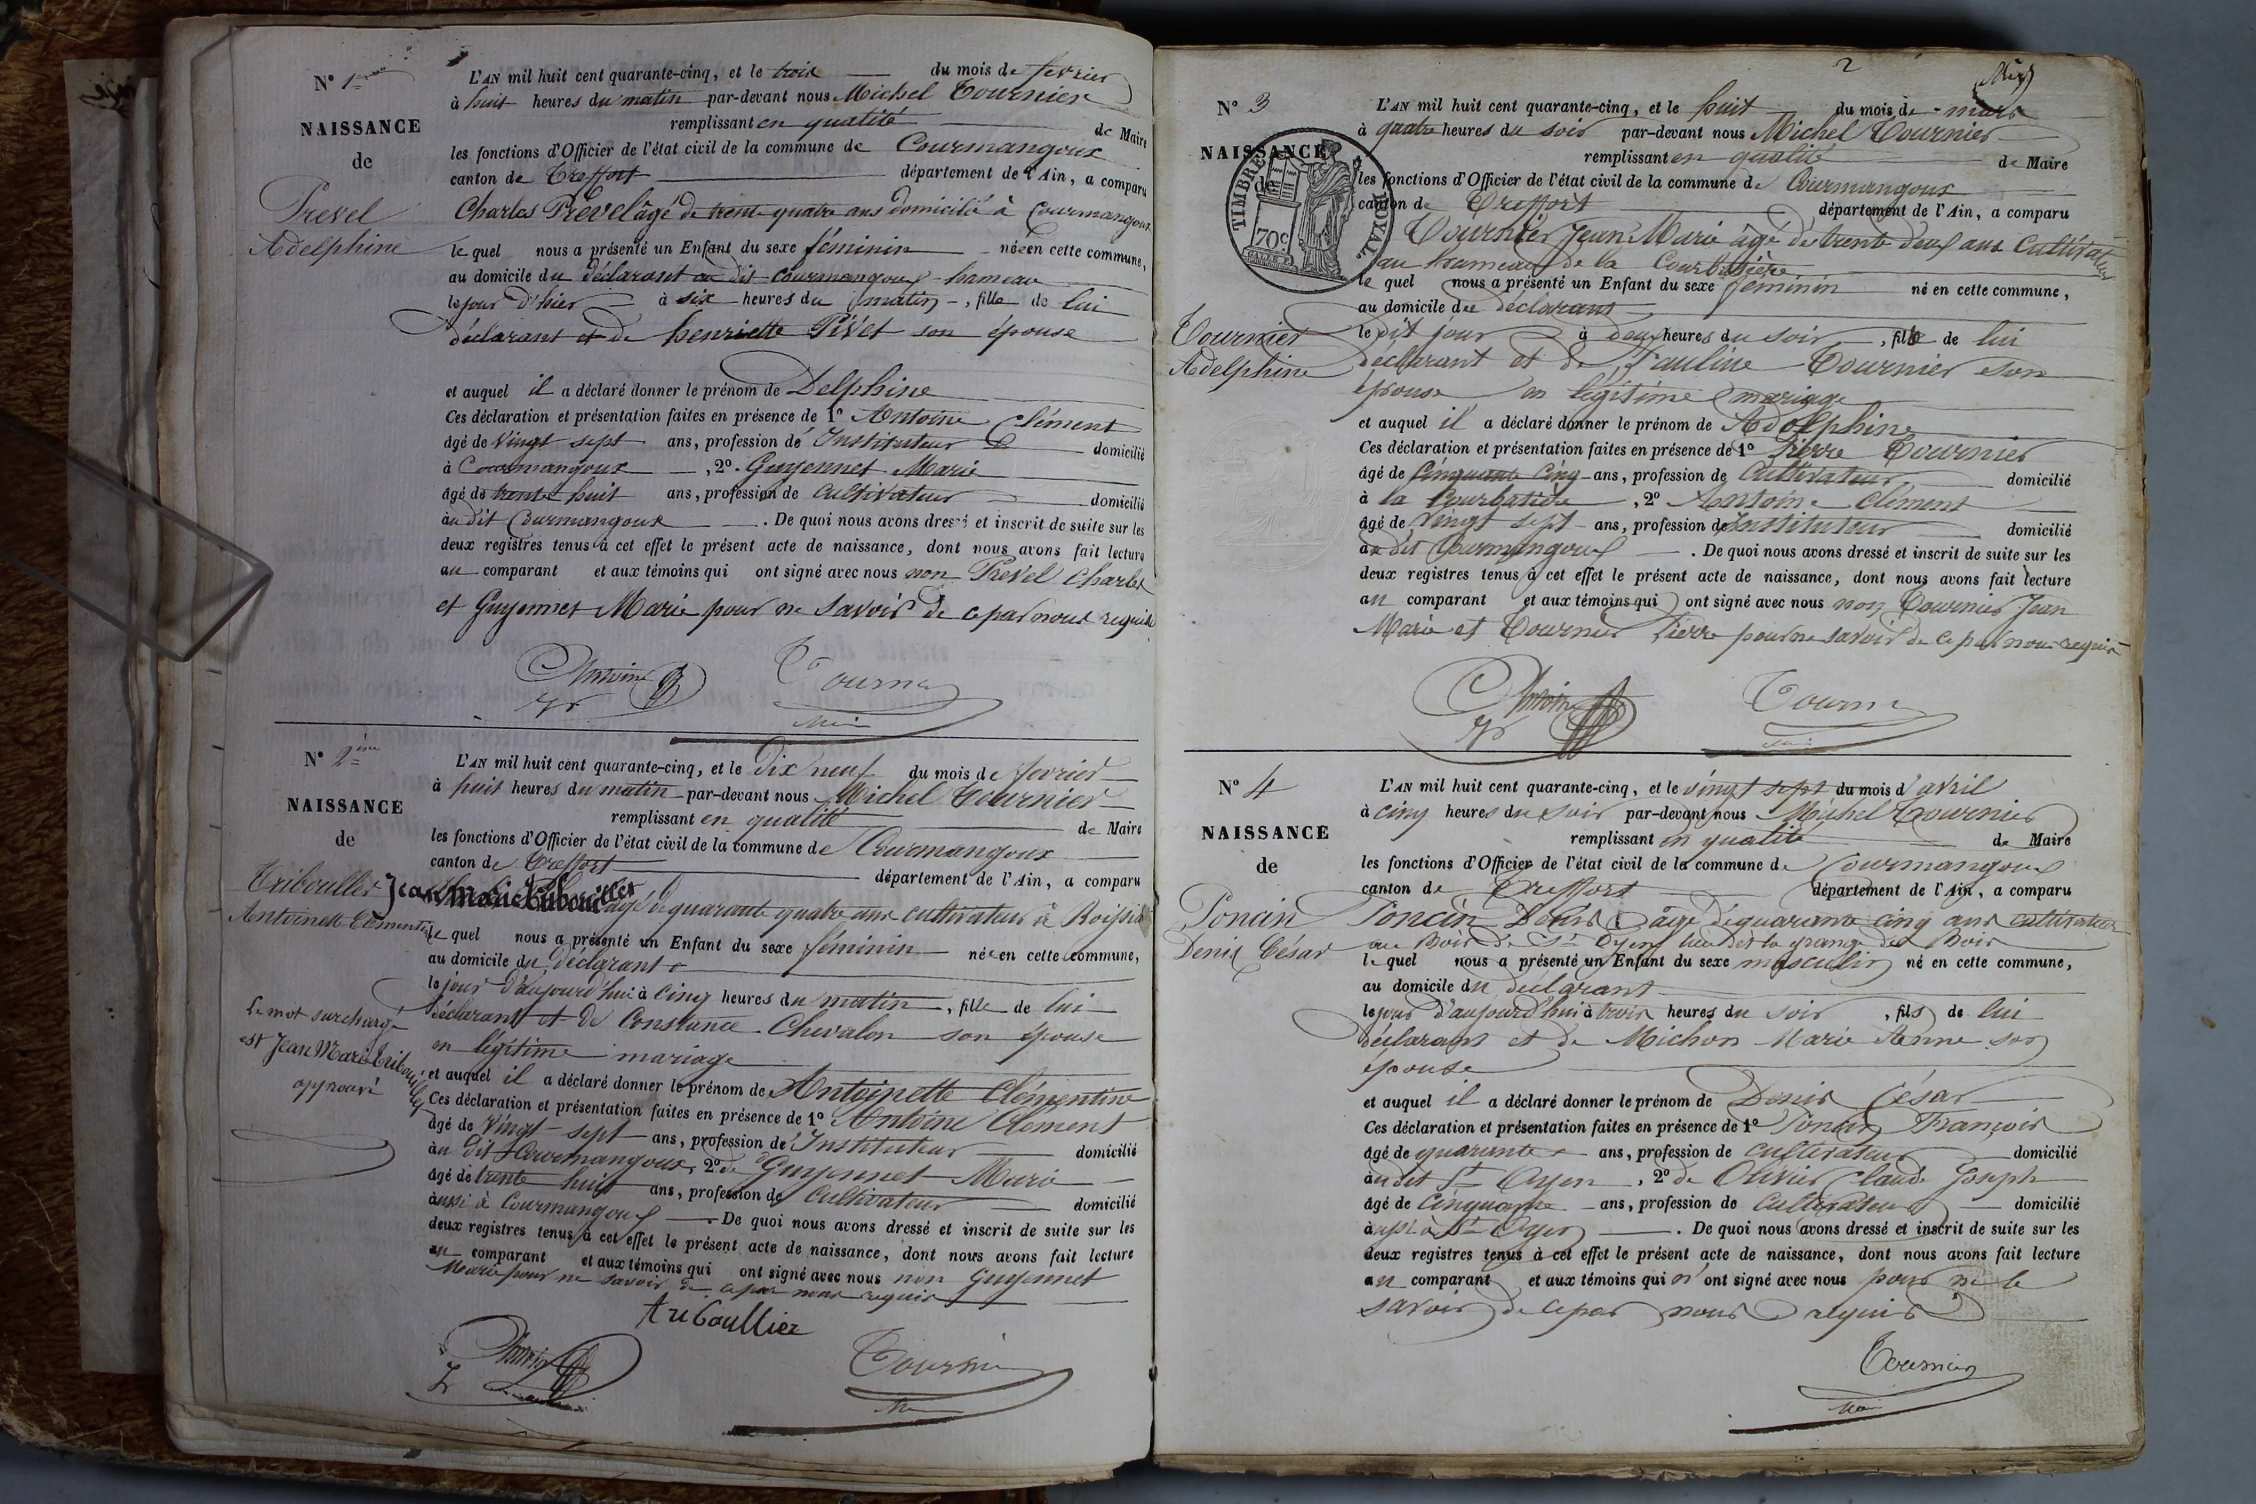 N° 1er
NAISSANCE
de
Prevel
Adelphine
L'AN mil huit cent quarante-cinq, et le trois du mois de fevrier
à huit heures du matin par-devant nous Michel Tournier
remplissant en qualité de Maire
les fonctions d'Officier de l'état civil de la commune de Courmangoux
canton de Treffort département de l'Ain, a comparu
Charles Prevel âgé de trente quatre ans domicilié à Courmangoux
le quel nous a présenté un Enfant du sexe féminin née en cette commune,
au domicile du déclarant au dit Courmangoux hameau
le jour d'hier à six heures du matin, fille de lui
déclarant et de henriette Pivet son épouse
et auquel il a déclaré donner le prénom de Delphine
Ces déclaration et présentation faites en présence de 1° Antoine Clément
âgé de vingt sept ans, profession de Instituteur domicilié
à Courmangoux, 2° Guyennet Marie
âgé de trente huit ans, profession de cultivateur domicilié
au dit Courmangoux. De quoi nous avons dressé et inscrit de suite sur les
deux registres tenus à cet effet le présent acte de naissance, dont nous avons fait lecture
au comparant et aux témoins qui ont signé avec nous non Prevel Charles
et Guyennet Marie pour ne savoir de ce par nous requis
Antoine Tournier
N° 2ème
NAISSANCE
de
Triboullet
Antoinette Clémentine
Le mot surchargé
est Jean Marie Triboullier
approuvé
L'AN mil huit cent quarante-cinq, et le dix neuf du mois de fevrier
à huit heures du matin par-devant nous Michel Tournier
remplissant en qualité de Maire
les fonctions d'Officier de l'état civil de la commune de Courmangoux
canton de Treffort département de l'Ain, a comparu
Jean Marie Triboullier âgé de quarante quatre ans cultivateur à Roissiat
le quel nous a présenté un Enfant du sexe féminin née en cette commune,
au domicile du déclarant
le jour d'aujourd'hui à cinq heures du matin, fille de lui
déclarant et de Constance Chevalon son épouse
en légitime mariage
et auquel il a déclaré donner le prénom de Antoinette Clémentine
Ces déclaration et présentation faites en présence de 1° Antoine Clément
âgé de vingt-sept ans, profession de Instituteur domicilié
au dit Courmangoux, 2° de Guyennet Marie
âgé de trente huit ans, profession de cultivateur domicilié
aussi à Courmangoux. De quoi nous avons dressé et inscrit de suite sur les
deux registres tenus à cet effet le présent acte de naissance, dont nous avons fait lecture
au comparant et aux témoins qui ont signé avec nous non Guyennet
Marie pour ne savoir de ce par nous requis
triboullier
Antoine Tournier
2
N° 3
NAISSANCE
de
TIMBRE ROYAL
70c
Tournier
Adelphine
L'AN mil huit cent quarante-cinq, et le huit du mois de mars
à quatre heures du soir par-devant nous Michel Tournier
remplissant en qualité de Maire
les fonctions d'Officier de l'état civil de la commune de Courmangoux
canton de Treffort département de l'Ain, a comparu
Tournier Jean Marie âgé de trente deux ans cultivateur
au hameau de la Courbatière
le quel nous a présenté un Enfant du sexe féminin né en cette commune,
au domicile du déclarant
le dit jour à deux heures du soir, fille de lui
déclarant et de Pauline Tournier son
épouse en légitime mariage
et auquel il a déclaré donner le prénom de Adolphine
Ces déclaration et présentation faites en présence de 1° Pierre Tournier
âgé de cinquante cinq ans, profession de cultivateur domicilié
à la Courbatière, 2° Antoine Clément
âgé de vingt sept ans, profession de Instituteur domicilié
au dit Courmangoux. De quoi nous avons dressé et inscrit de suite sur les
deux registres tenus à cet effet le présent acte de naissance, dont nous avons fait lecture
au comparant et aux témoins qui ont signé avec nous non Tournier Jean
Marie et Tournier Pierre pour ne savoir de ce par nous requis
Antoine Tournier
N° 4
NAISSANCE
de
Poncin
Denis César
L'AN mil huit cent quarante-cinq, et le vingt sept du mois d'avril
à cinq heures du soir par-devant nous Michel Tournier
remplissant en qualité de Maire
les fonctions d'Officier de l'état civil de la commune de Courmangoux
canton de Treffort département de l'Ain, a comparu
Poncin Denis âgé de quarante cinq ans cultivateur
au Bois de St Oyen lieu dit la grange du Bois
le quel nous a présenté un Enfant du sexe masculin né en cette commune,
au domicile du déclarant
le jour d'aujourd'hui à trois heures du soir, fils de lui
déclarant et de Michon Marie Anne son
épouse
et auquel il a déclaré donner le prénom de Denis César
Ces déclaration et présentation faites en présence de 1° Poncin François
âgé de quarante ans, profession de cultivateur domicilié
au dit St Oyen, 2° de Olivier Claude Joseph
âgé de cinquante ans, profession de cultivateur domicilié
aussi à St Oyen. De quoi nous avons dressé et inscrit de suite sur les
deux registres tenus à cet effet le présent acte de naissance, dont nous avons fait lecture
au comparant et aux témoins qui n'ont signé avec nous pour ne le
savoir de ce par nous requis
Tournier